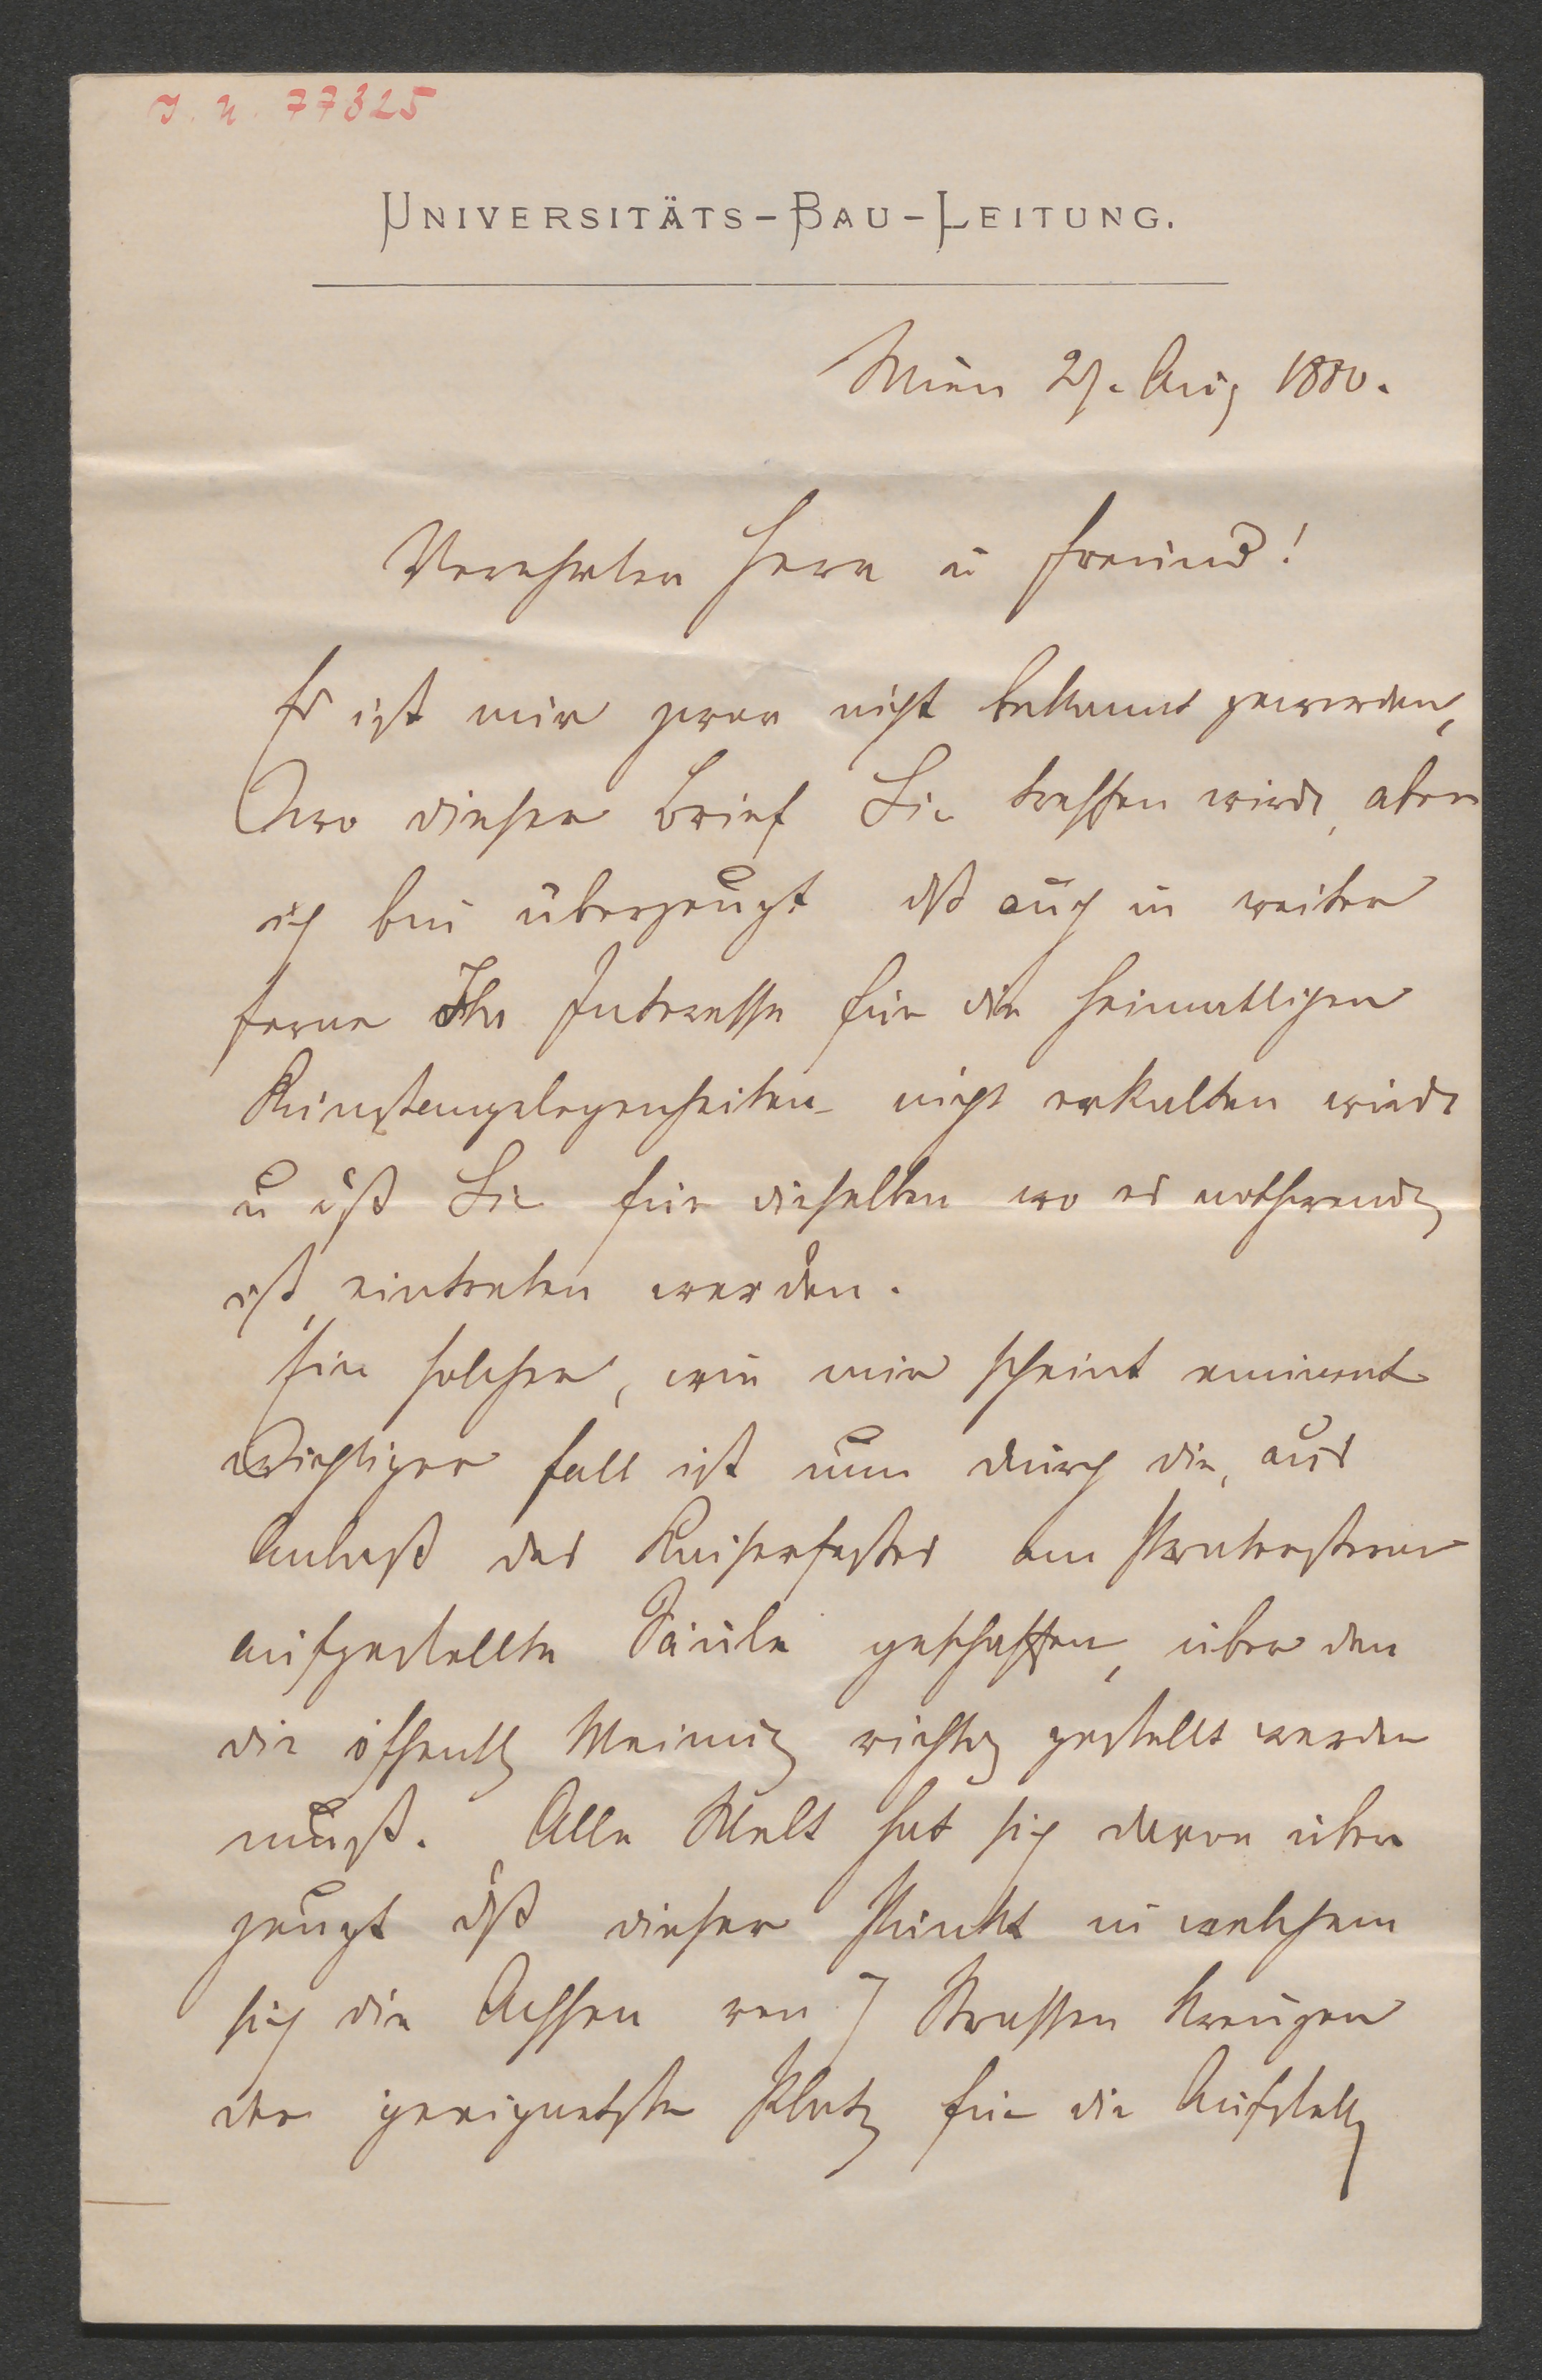 J. N. 77325
UNIVERSITÄTS-BAU-LEITUNG.
Wien 27. Aug 1880.
Verehrter Herr u Freund!
Es ist mir zwar nicht bekannt geworden,
wo dieser Brief Sie treffen wird, aber
ich bin überzeugt dß auch in weiter
Ferne Ihr Interesse für die heimatlichen
Kunstangelegenheiten nicht erkalten wird
u dß Sie für dieselben wo es nothwendg
ist, eintreten werden.
Ein solcher, wie mir scheint eminent
wichtiger Fall ist nun durch die, aus
Anlaß des Kaiserfestes am Praterstern
aufgestellte Säule geschaffen, über den
die öffentl Meinung richtg gestellt werden
muß. Alle Welt hat sich davon über
zeugt dß dieser Punkt in welchem
sich die Achsen von 7 Strassen kreuzen
der geeignetste Platz für die Aufstellg